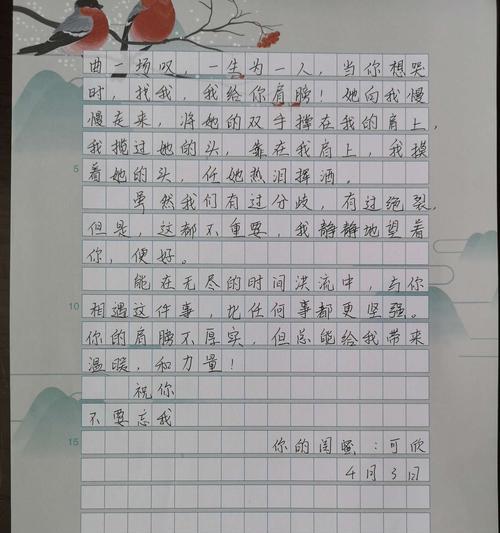 曲一场叹，一生为一人，当你想哭
时，找我，我给你肩膀！她向我慢
慢走来，将她的双手撑在我的肩上，
我揽过她的头，靠在我肩上，我摸
5 着她的头，任她热泪挥洒。
虽然我们有过分歧，有过绝裂，
但是，这都不重要，我静静地望着
你，便好。
能在无尽的时间洪流中，与你
10 相遇这件事，比任何事都更坚强。
你的肩膀不厚实，但总能给我带来
温暖，和力量！
祝你
不要忘我
15 你的闺蜜：可欣
4月3日